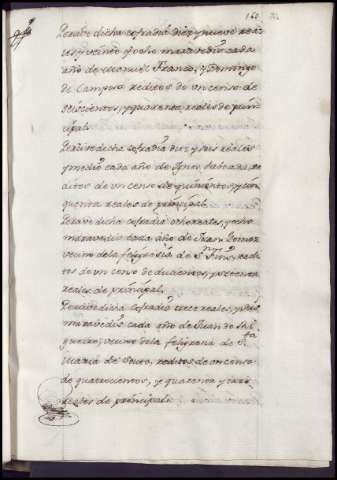 160
Perzive dicha cofradia diez y nueve rea-
les y veinte y ocho maravedis cada
año de Manuel Franco, y Domingo
de Campos reditos de un censo de
seiscientos, y quarenta reales de prin-
cipal.
Perzive dicha cofradia diez y seis reales
y medio cada año de Ignes re-
ditos de un censo de quinientos, y cin-
quenta reales de principal.
Perzive dicha cofradia ocho reales, y ocho
maravedis cada año de Fran.co Gomez
vecino de la feligresia de S.n redi-
tos de un censo de ducientos, y setenta
reales de principal.
Perzive dicha cofradia trece reales, y seis
maravedis cada año de Juan de
vecino de la feligresia de S.ta
Maria de Souto, reditos de un censo
de quatrocientos, y quarenta y
reales de principal.